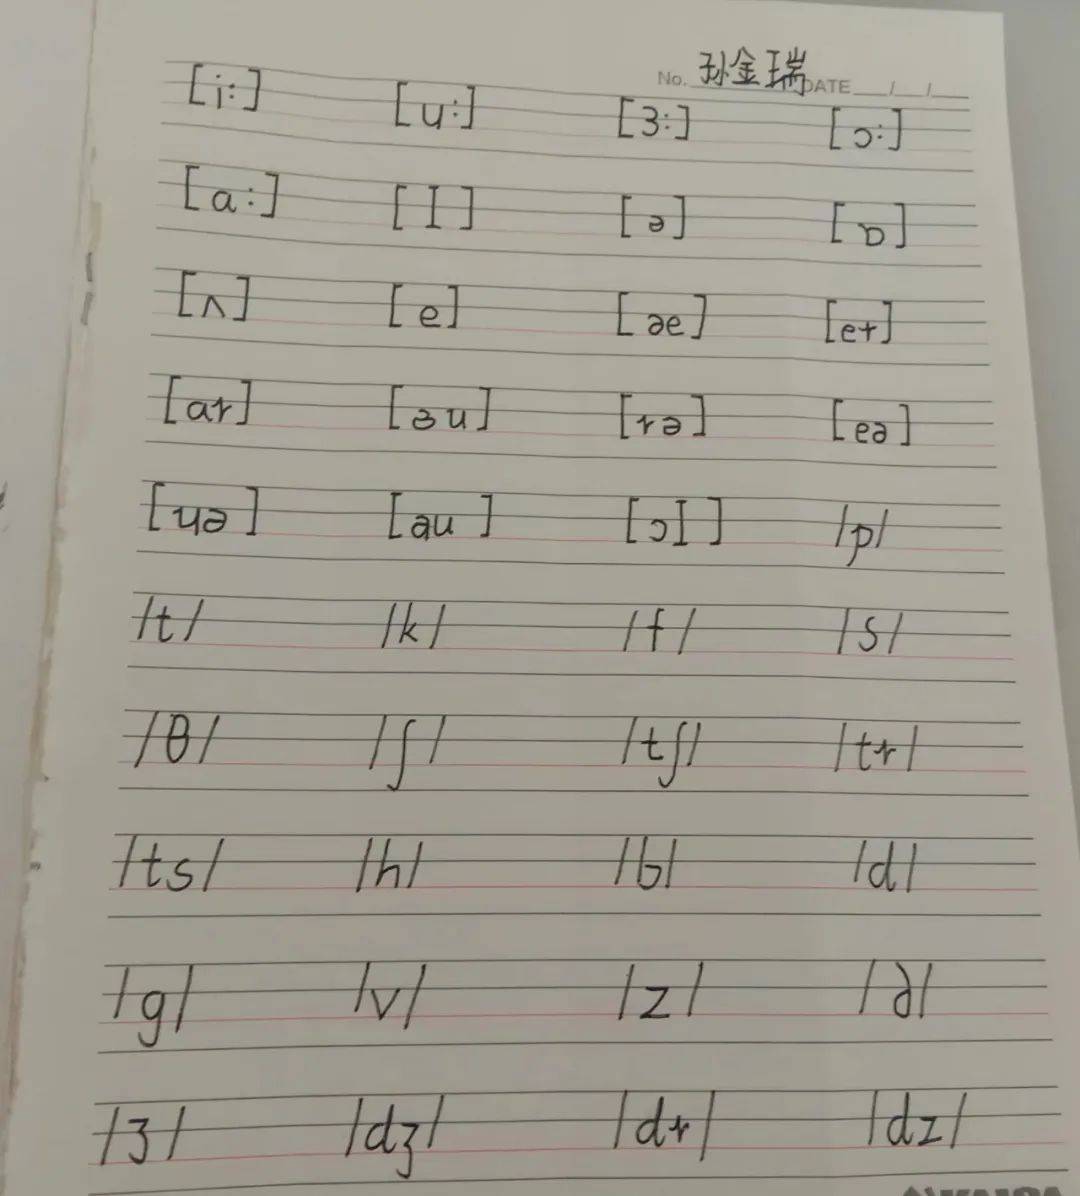 No. 孙金瑞 DATE / /
[i:] [u:] [3:] [ɔ:]
[a:] [I] [ə] [ɒ]
[ʌ] [e] [əe] [et]
[ar] [зu] [rə] [eə]
[uə] [au] [ɔI] /p/
/t/ /k/ /f/ /s/
/θ/ /ʃ/ /tʃ/ /tr/
/ts/ /h/ /b/ /d/
/g/ /v/ /z/ /∂/
/ʒ/ /dʒ/ /dr/ /dz/